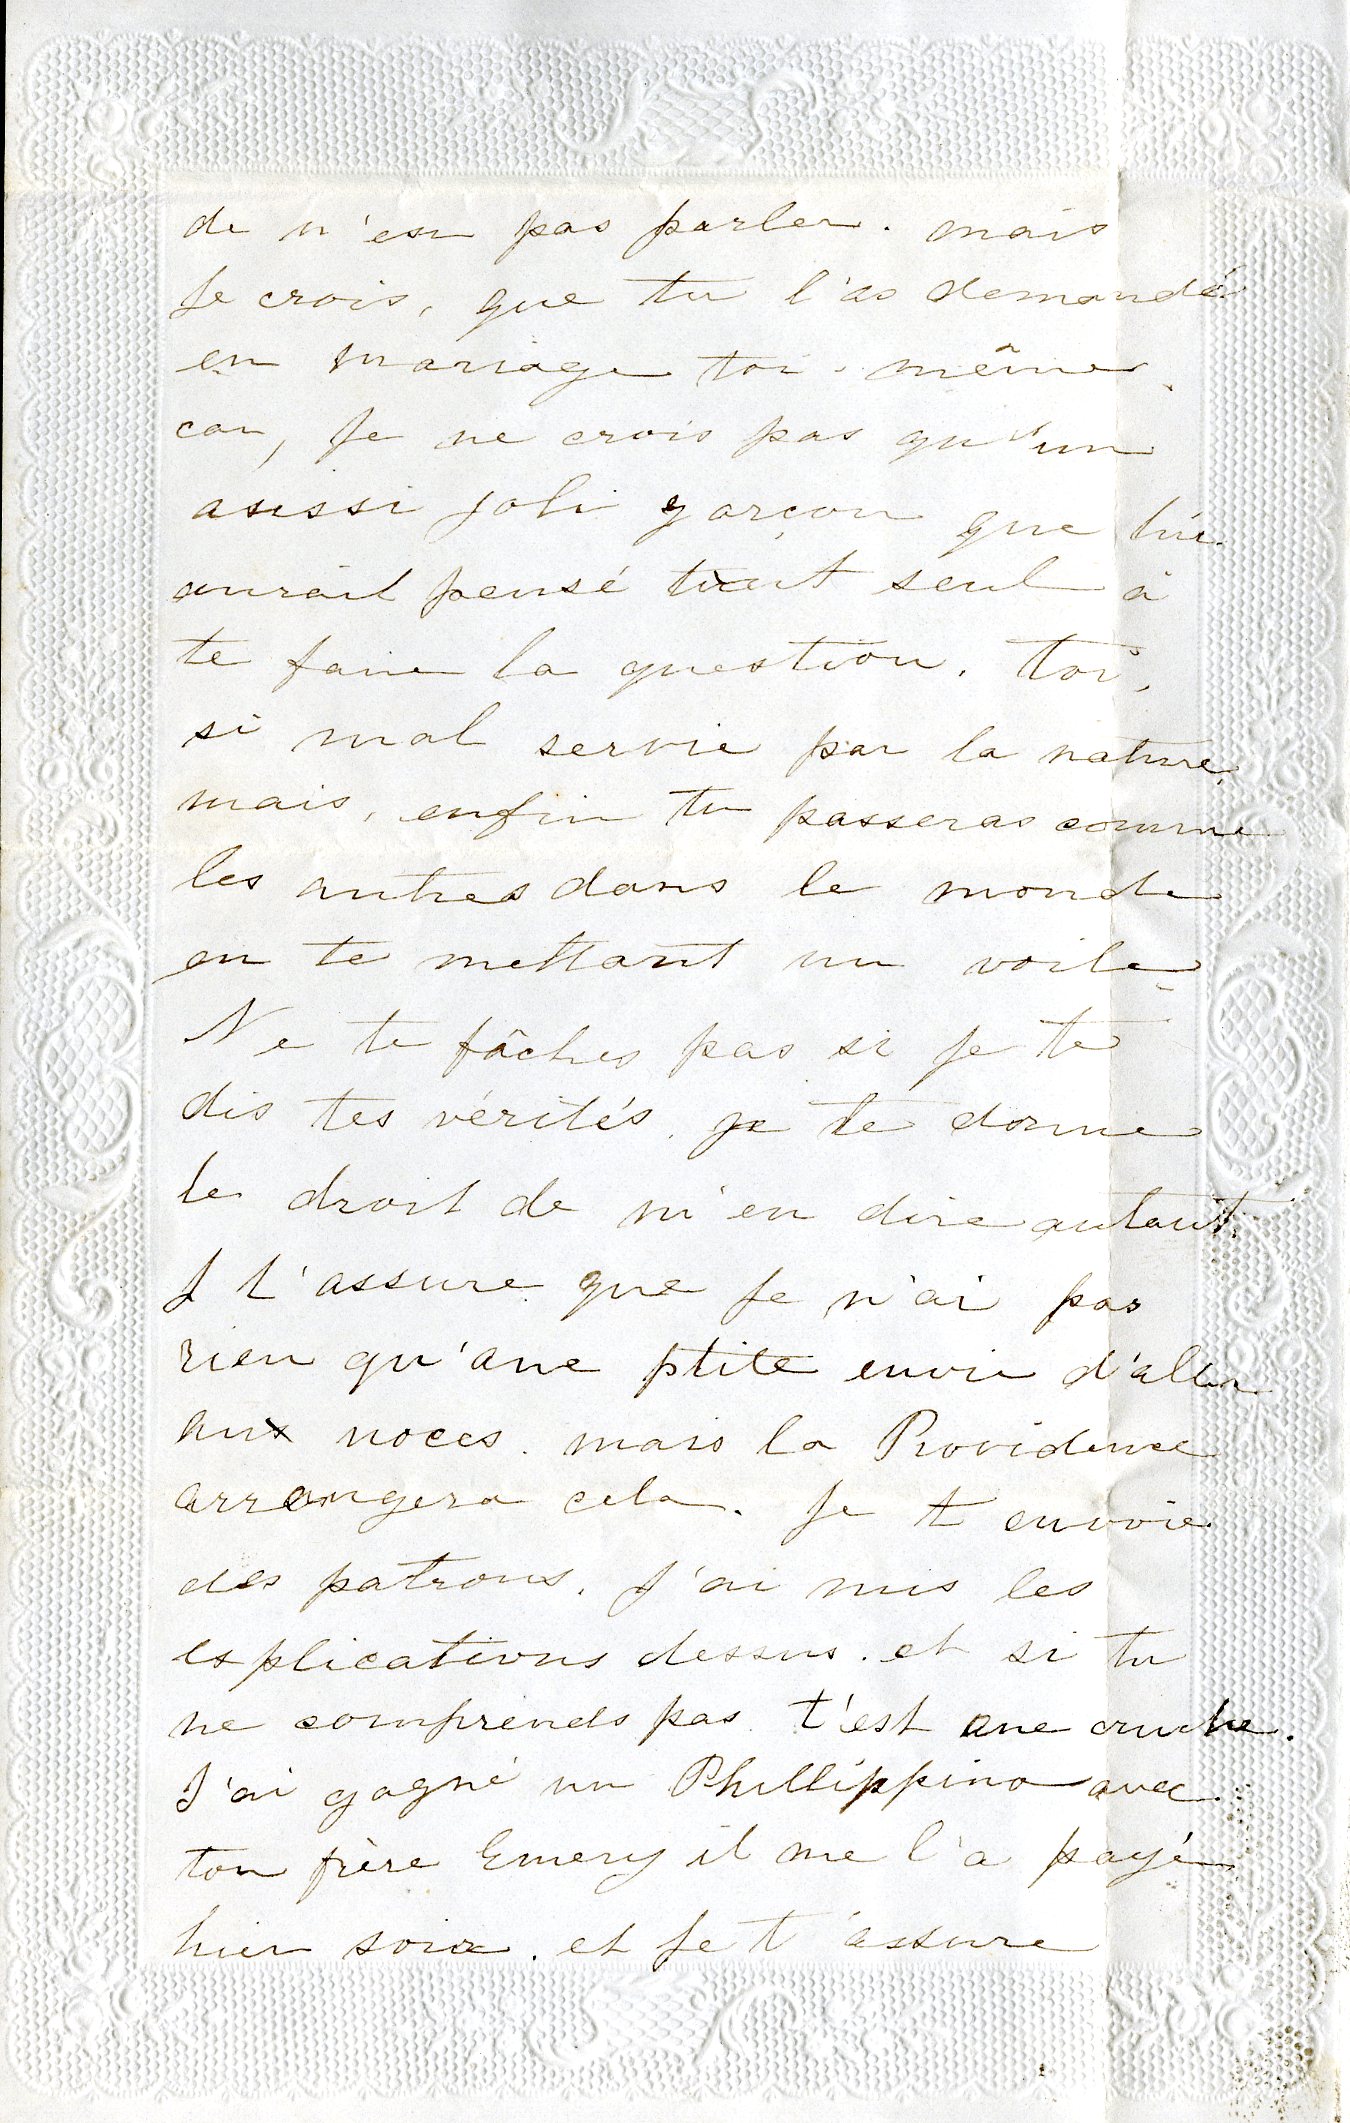 de n'en pas parler. mais
je crois, que tu l'as demandé
en mariage toi-même.
car, je ne crois pas qu'un
aussi joli garçon que lui
aurait pensé tout seul à
te faire la question. toi,
si mal servie par la nature,
mais, enfin tu passeras comme
les autres dans le monde
en te mettant un voile
Ne te fâches pas si je te
dis tes vérités. je te donne
le droit de m'en dire autant.
J t'assure que je n'ai pas
rien qu'une ptite envie d'aller
aux noces. mais la Providence
arrangera cela. Je t envoie
des patrons. J'ai mis les
explications dessus. et si tu
ne comprends pas t'est une cruche.
J'ai gagné un Phillippina avec
ton frère Emery il me l'a payé
hier soir. et je t'assure